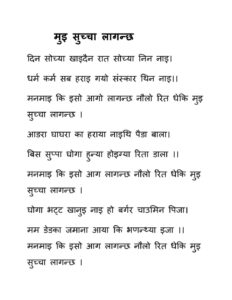 मुइ सुच्चा लागन्छ
दिन सोच्या खाइदैन रात सोच्या निन नाइ।
धर्म कर्म सब हराइ गयो संस्कार थिन नाइ।।
मनमाइ कि इसो आगो लागन्छ नौलो रित धेकि मुइ
सुच्चा लागन्छ ।
आङरा घाघरा का हराया नाइथि पैडा बाला।
बिस सुप्पा घोगा हुन्या होइग्या रिता डाला ।।
मनमाइ कि इसो आग लागन्छ नौलो रित धेकि मुइ
सुच्चा लागन्छ ।
घोगा भट्ट खानुइ नाइ हो बर्गर चाउमिन पिजा।
मम डेडका जमाना आया कि भणन्थ्या इजा ।।
मनमाइ कि इसो आग लागन्छ नौलो रित धेकि मुइ
सुच्चा लागन्छ ।